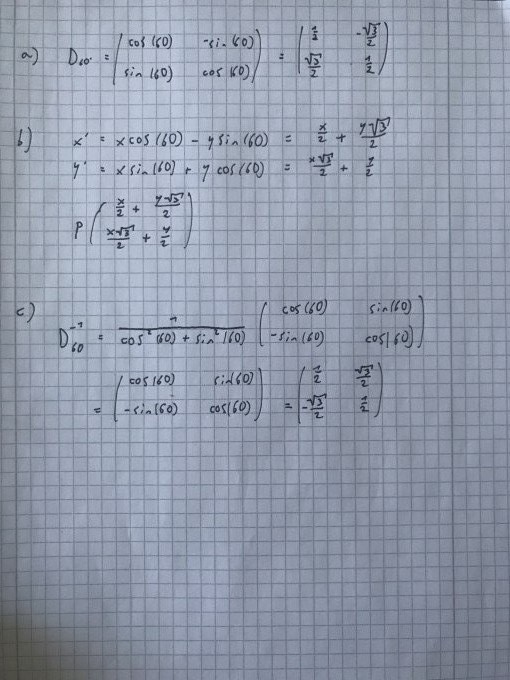 a) D₆₀° = ( cos(60) -sin(60) ; sin(60) cos(60) ) = ( 1/2 -√3/2 ; √3/2 1/2 )
b) x' = x cos(60) - y sin(60) = x/2 + y√3/2
y' = x sin(60) + y cos(60) = x√3/2 + y/2
P ( x/2 + y√3/2 ; x√3/2 + y/2 )
c) D₆₀⁻¹ = 1/(cos²(60) + sin²(60)) ( cos(60) sin(60) ; -sin(60) cos(60) )
= ( cos(60) sin(60) ; -sin(60) cos(60) ) = ( 1/2 √3/2 ; -√3/2 1/2 )